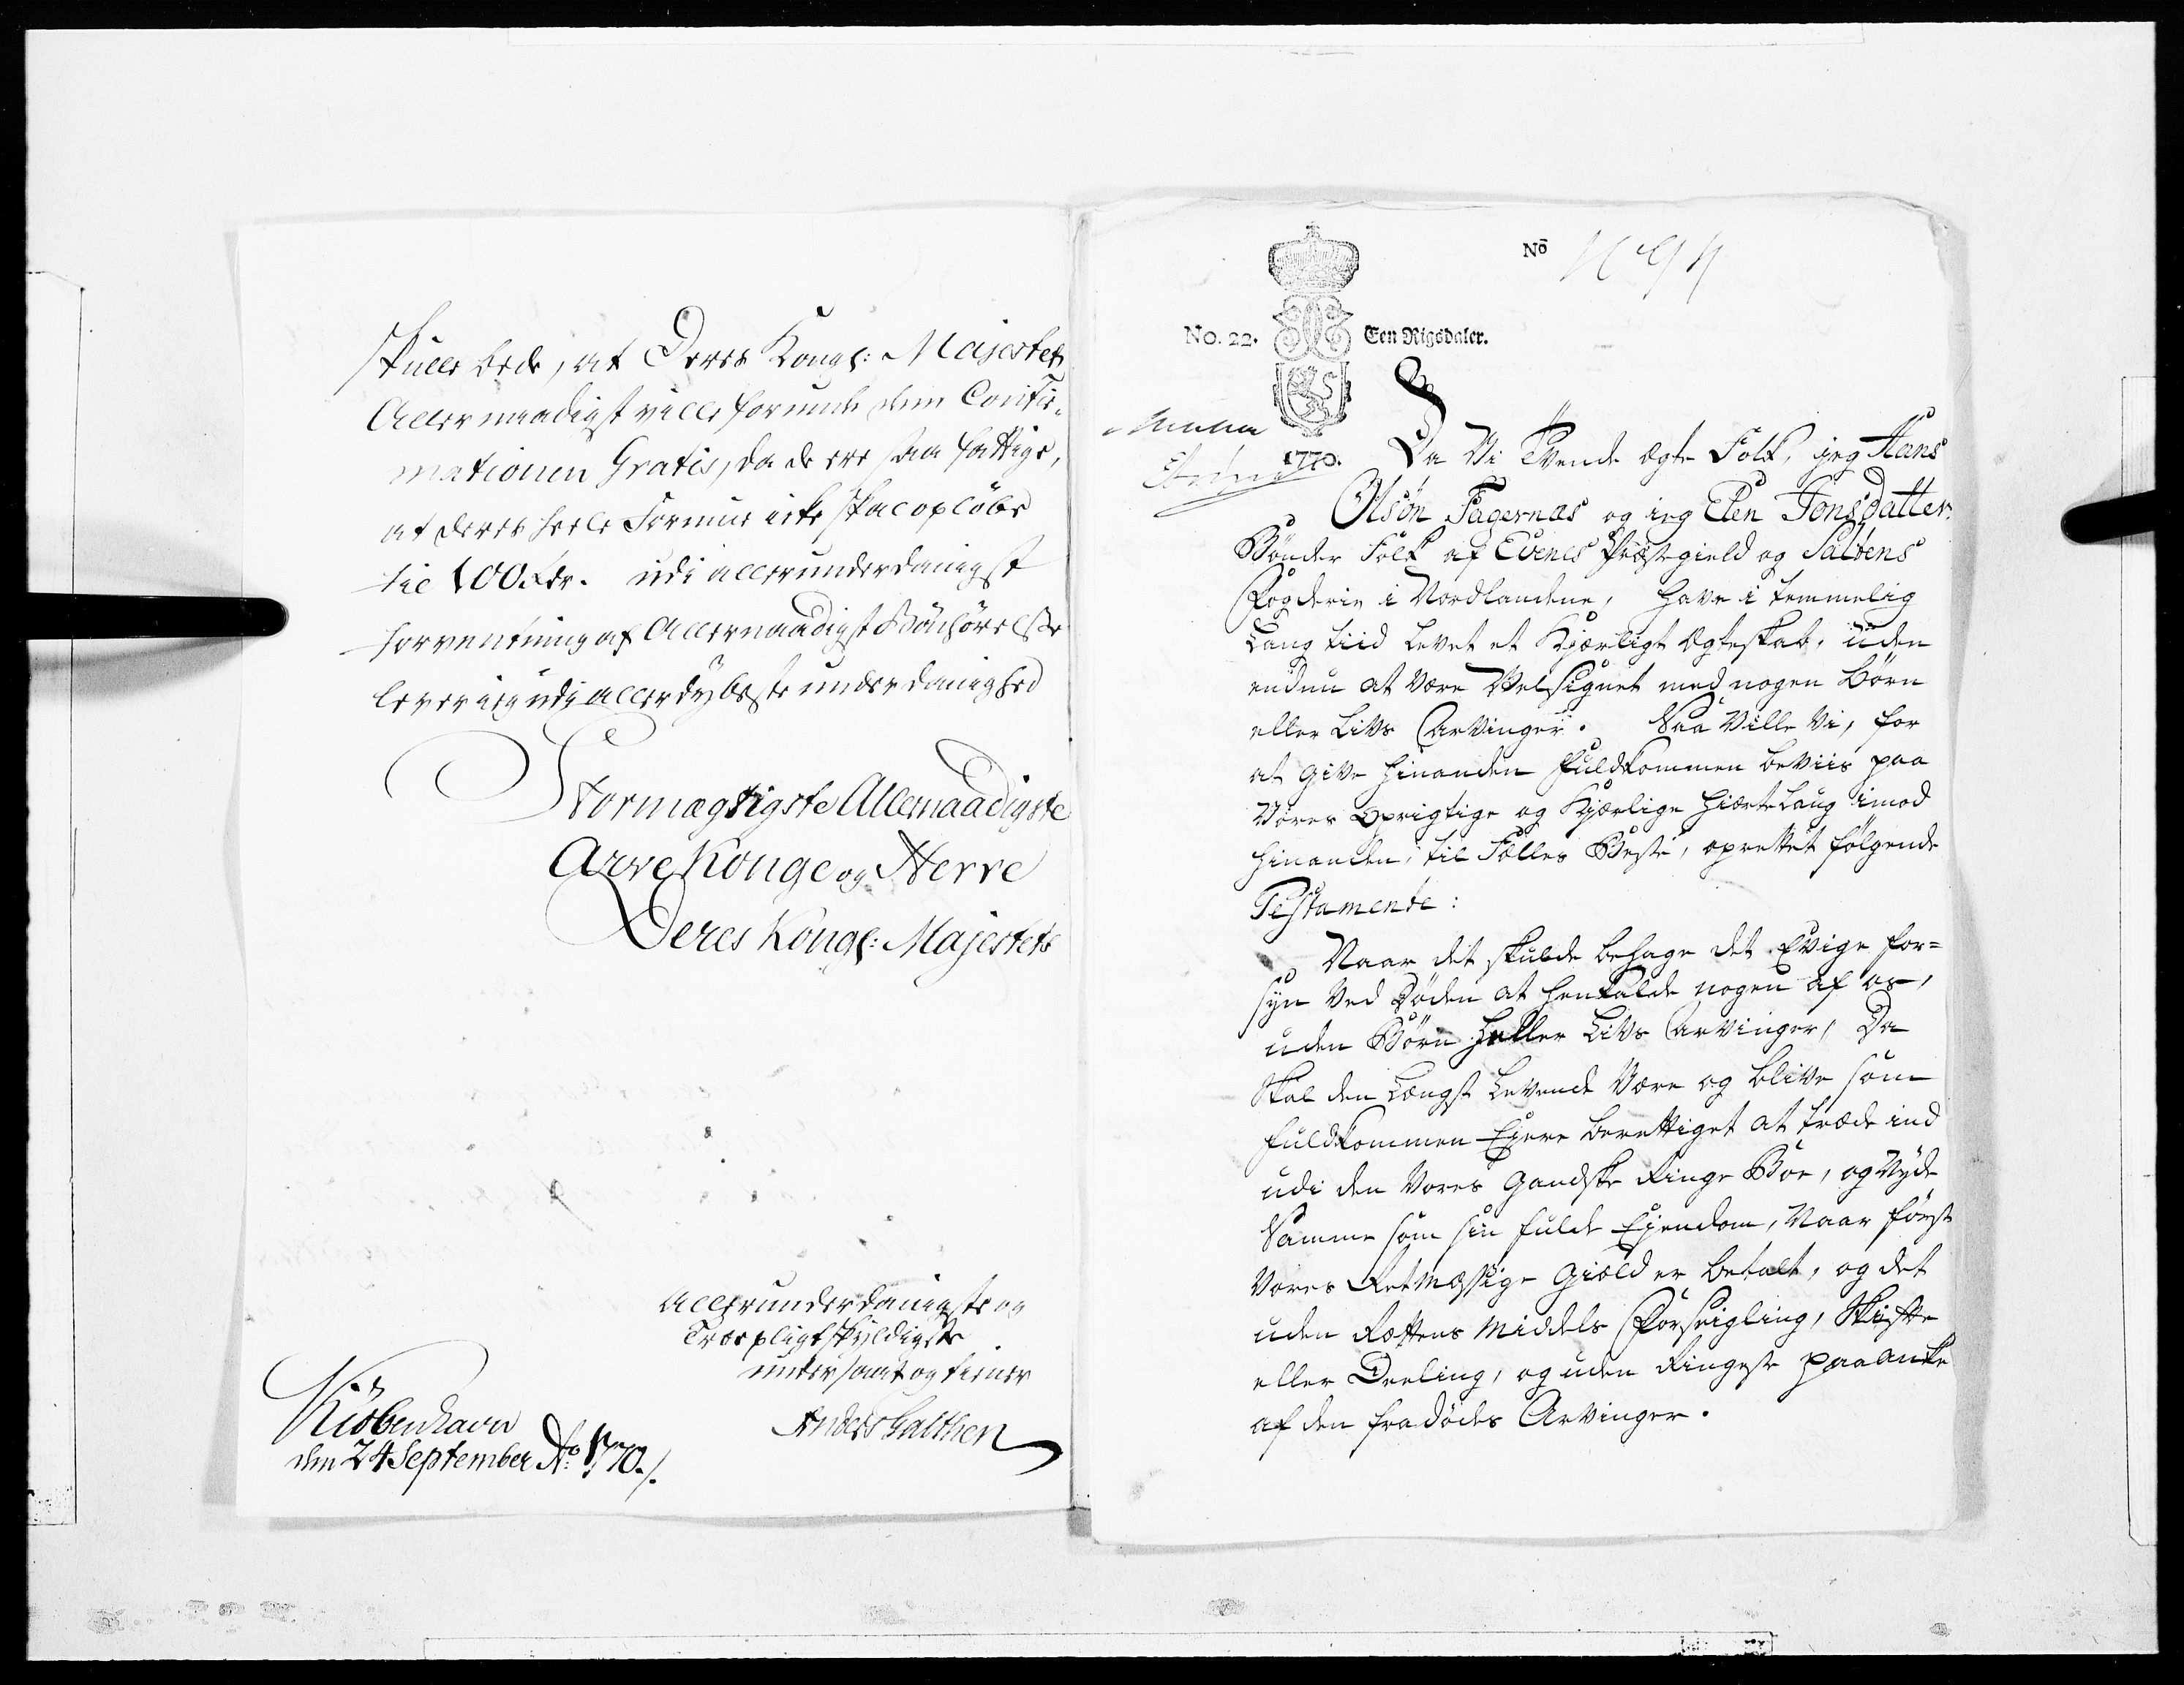 skulle bede, at Deres Kongl: Majestet
Allernaadigst ville forunde dem Confir-
mationen Gratis, da de ere saa fattige,
at deres heele Formue icke skal opløbe
til 100 Rdr. udi allerunderdanigst
forventning af Allernaadigst Bönhörelse
lever ieg udi allerdybeste underdanighed
Stormægtigste Allernaadigste
Arve Konge og Herre
Deres Kongl: Majestets
allerunderdanigste og
Troe pligtskyldigste
undersaat og tiener
Anders Galthen
Kiöbenhavn
den 24 September Ao 1770./.
No
No. 22. Een Rigsdaler.
1770.
Da Vi Tvende Ægte Folk, jeg Hans
Olsøn Fagernæs og jeg Elen Jonsdatter
Bönder Folk af Evenes Præstegield og Saltens
Fogderie i Nordlandene, have i temmelig
Lang tiid levet et Kjærligt Ægteskab, uden
endnu at være Velsignet med nogen Börn
eller Livs Arvinger. Saa Ville Vi, for
at give hinanden fuldkommen beviis paa
Vores oprigtige og Kjærlige Hiertelaug imod
hinanden, til Fælles Beste, oprettet følgende
Testamente:
Naar det skulde behage det Evige for=
syn Ved Døden at henkalde nogen af os,
uden Börn heller Livs Arvinger, Da
Skal den Længst Levende Være og blive som
fuldkommen Ejere berettiget at træde ind
udi den Vores gandske Ringe Boe, og Nyde
Samme som sin fulde Ejendom, Naar först
Vores Retmæssige Giæld er betalt, og det
uden Rættens Middels Forseigling, Skifte
eller Deeling, og uden Ringeste paaanke
af den fradödes Arvinger.